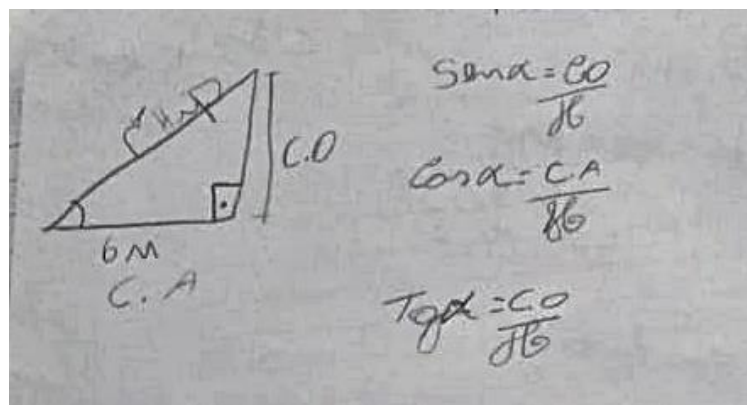 C.O
6M
C. A
Senα = CO
H
Cosα = C.A
H
Tgα = CO
H